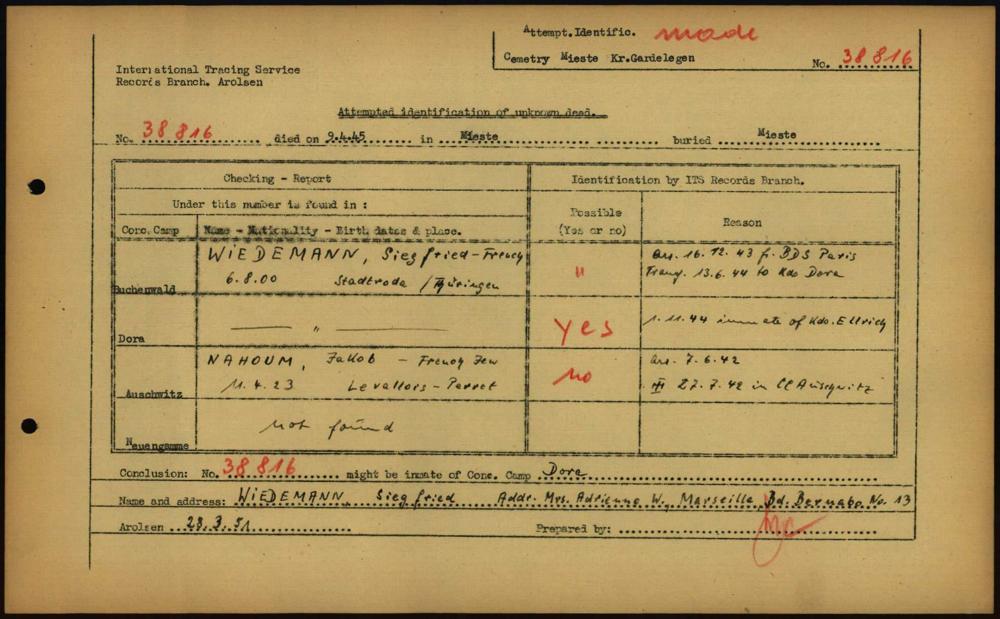 Attempt.Identific. made
Cemetry Mieste Kr.Gardelegen No. 38 816
International Tracing Service
Records Branch. Arolsen
Attempted identification of unknown dead.
No. 38 816 died on 9.4.45 in Mieste buried Mieste
Checking - Report Identification by ITS Records Branch.
Under this number is found in :
Possible
(Yes or no) Reason
Conc. Camp Name - Nationality - Birth dates & place.
WIEDEMANN, Siegfried - French Arr. 16.12.43 f. BDS Paris
6.8.00 Stadtroda / Thüringen " Transf. 13.6.44 to Kdo Dora
Buchenwald
" yes 1.11.44 inmate of Kdo. Ellrich
Dora
NAHOUM, Jakob - French Jew no Arr. 7.6.42
11.4.23 Levallois - Perret 27.7.42 in CC Auschwitz
Auschwitz
not found
Neuengamme
Conclusion: No. 38 816 might be inmate of Conc. Camp Dora
Name and address: WIEDEMANN, Siegfried Addr. Mrs. Adrienne W., Marseille, Bd. Bernabo No. 13
Arolsen 28.3.51 Prepared by: